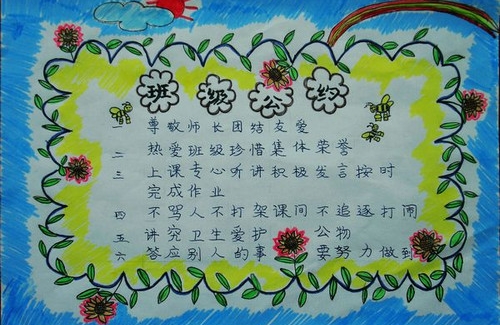 班级公约
一 尊敬师长团结友爱
二 热爱班级珍惜集体荣誉
三 上课专心听讲积极发言按时
完成作业
四 不骂人不打架课间不追逐打闹
五 讲究卫生爱护公物
六 答应别人的事要努力做到